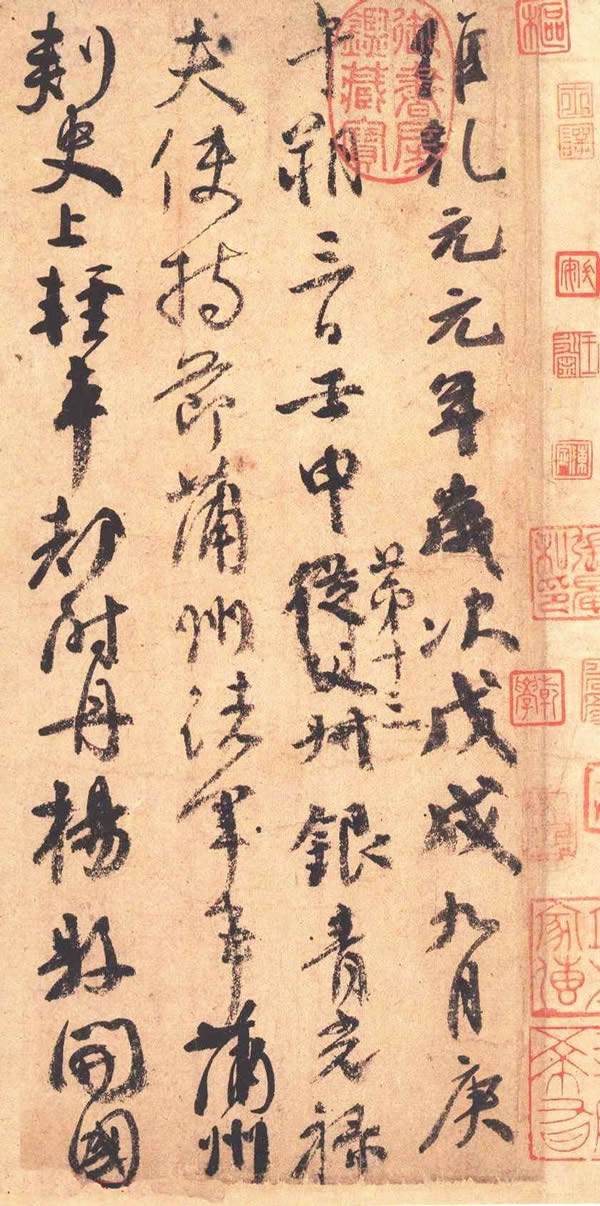 維乾元元年歲次戊戌九月庚
午朔三日壬申第十三從父叔銀青光祿
夫使持節蒲州諸軍事蒲州
刺史上輕車都尉丹楊縣開國
御書房鑑藏寶
乾學